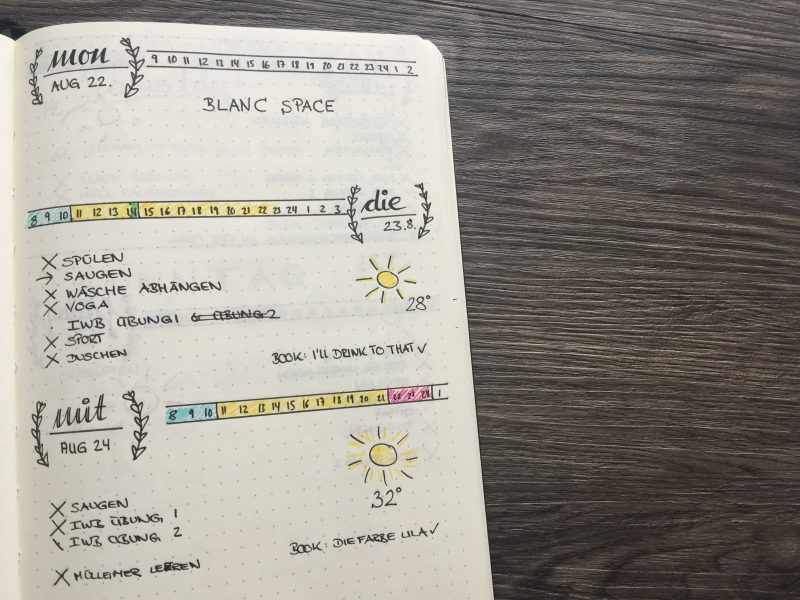 mon
AUG 22.
9 10 11 12 13 14 15 16 17 18 19 20 21 22 23 24 1 2
BLANC SPACE
8 9 10 11 12 13 14 15 16 17 18 19 20 21 22 23 24 1 2 3
die
23.8.
X SPÜLEN
→ SAUGEN
X WÄSCHE ABHÄNGEN
X YOGA
28°
IWB ÜBUNG 1 & ÜBUNG 2
X SPORT
X DUSCHEN
BOOK: I'LL DRINK TO THAT ✓
mit
AUG 24
8 9 10 11 12 13 14 15 16 17 18 19 20 21 22 23 24 1
32°
X SAUGEN
X IWB ÜBUNG 1
\ IWB ÜBUNG 2
BOOK: DIE FARBE LILA ✓
X MÜLLEIMER LEEREN